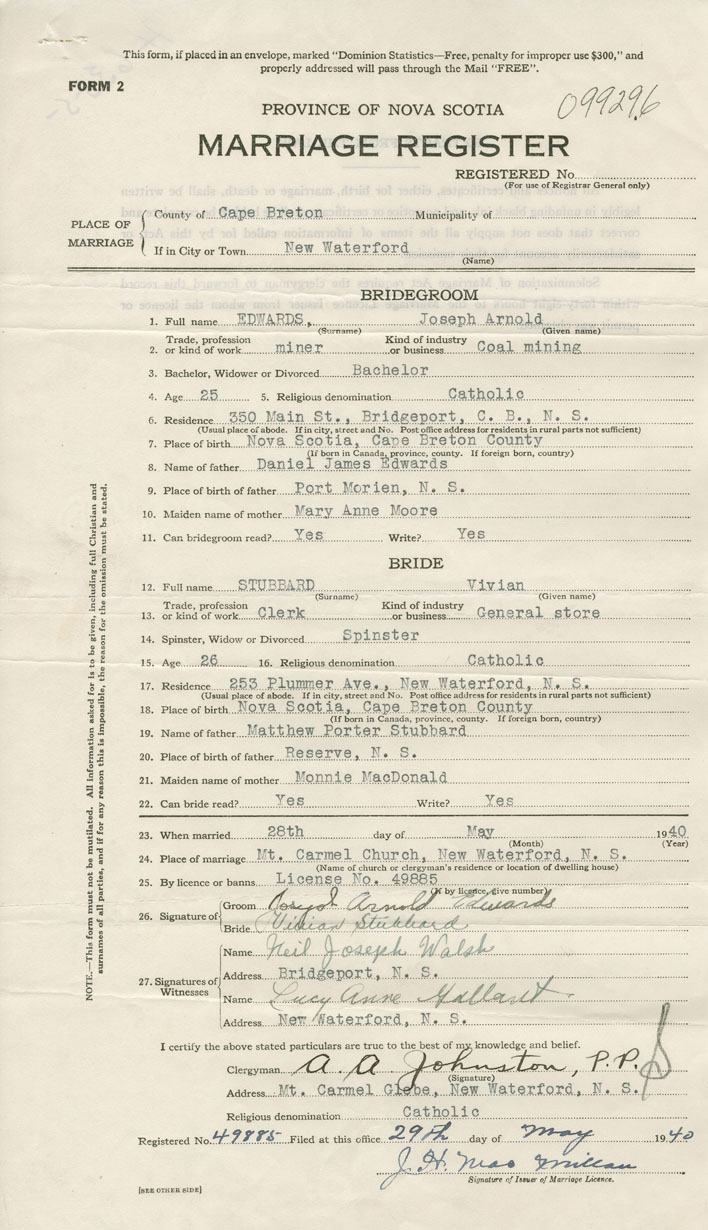 This form, if placed in an envelope, marked "Dominion Statistics—Free, penalty for improper use $300," and
properly addressed will pass through the Mail "FREE".
FORM 2
099296
PROVINCE OF NOVA SCOTIA
MARRIAGE REGISTER
REGISTERED No.
(For use of Registrar General only)
PLACE OF MARRIAGE
County of Cape Breton Municipality of
If in City or Town New Waterford
(Name)
BRIDEGROOM
1. Full name EDWARDS, Joseph Arnold
(Surname) (Given name)
2. Trade, profession or kind of work miner Kind of industry or business Coal mining
3. Bachelor, Widower or Divorced Bachelor
4. Age 25 5. Religious denomination Catholic
6. Residence 350 Main St., Bridgeport, C. B., N. S.
(Usual place of abode. If in city, street and No. Post office address for residents in rural parts not sufficient)
7. Place of birth Nova Scotia, Cape Breton County
(If born in Canada, province, county. If foreign born, country)
8. Name of father Daniel James Edwards
9. Place of birth of father Port Morien, N. S.
10. Maiden name of mother Mary Anne Moore
11. Can bridegroom read? Yes Write? Yes
BRIDE
12. Full name STUBBARD Vivian
(Surname) (Given name)
13. Trade, profession or kind of work Clerk Kind of industry or business General store
14. Spinster, Widow or Divorced Spinster
15. Age 26 16. Religious denomination Catholic
17. Residence 253 Plummer Ave., New Waterford, N. S.
(Usual place of abode. If in city, street and No. Post office address for residents in rural parts not sufficient)
18. Place of birth Nova Scotia, Cape Breton County
(If born in Canada, province, county. If foreign born, country)
19. Name of father Matthew Porter Stubbard
20. Place of birth of father Reserve, N. S.
21. Maiden name of mother Monnie MacDonald
22. Can bride read? Yes Write? Yes
23. When married 28th day of May 1940
(Month) (Year)
24. Place of marriage Mt. Carmel Church, New Waterford, N. S.
(Name of church or clergyman's residence or location of dwelling house)
25. By licence or banns License No. 49885
(If by licence, give number)
26. Signature of
Groom Joseph Arnold Edwards
Bride Vivian Stubbard
27. Signatures of Witnesses
Name Neil Joseph Walsh
Address Bridgeport, N. S.
Name Lucy Anne Gallant
Address New Waterford, N. S.
I certify the above stated particulars are true to the best of my knowledge and belief.
Clergyman A. A Johnston, P.P.
(Signature)
Address Mt. Carmel Glebe, New Waterford, N. S.
Religious denomination Catholic
Registered No. 49885 Filed at this office 29th day of May 1940
J. H. MacMillan
Signature of Issuer of Marriage Licence.
[SEE OTHER SIDE]
NOTE.—This form must not be mutilated. All information asked for is to be given, including full Christian and
surnames of all parties, and if for any reason this is impossible, the reason for the omission must be stated.